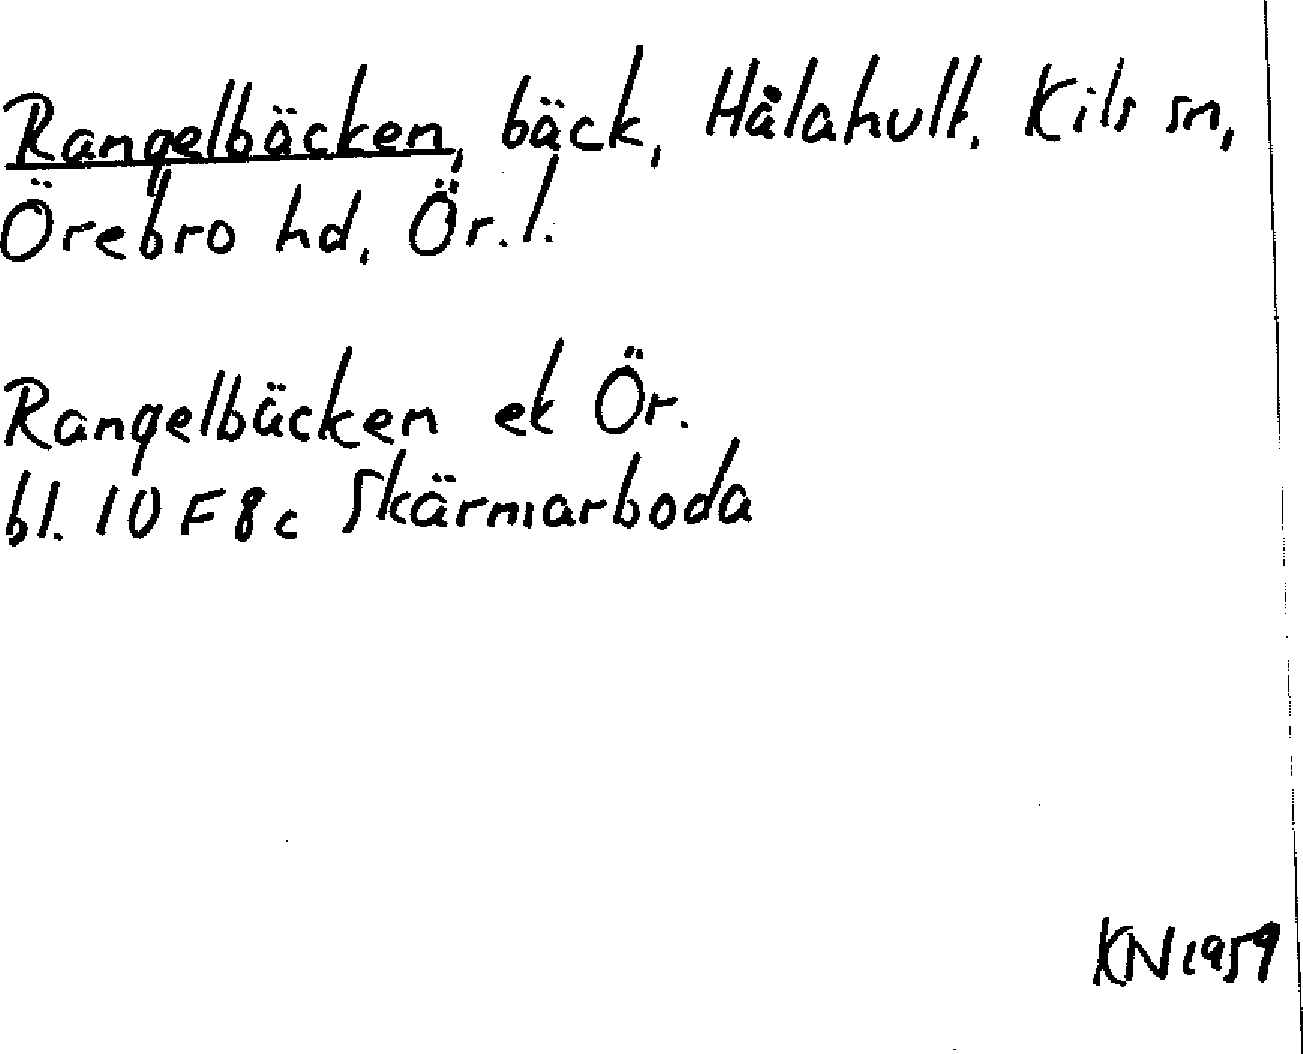 Rangelbäcken, bäck, Hålahult, Kils sn,
Örebro hd, Ör. l.
Rangelbäcken ek Ör.
bl. 10 F 8 c Skärmarboda
KN 1959